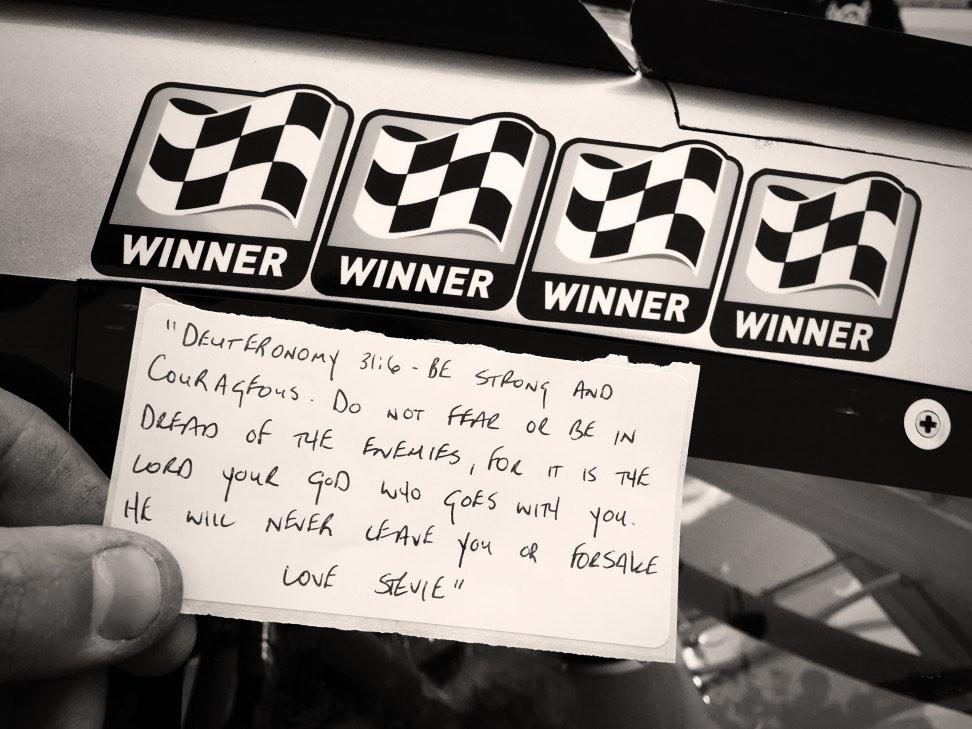 WINNER WINNER WINNER WINNER
"DEUTERONOMY 31:6 - BE STRONG AND
COURAGEOUS. DO NOT FEAR OR BE IN
DREAD OF THE ENEMIES, FOR IT IS THE
LORD YOUR GOD WHO GOES WITH YOU.
HE WILL NEVER LEAVE YOU OR FORSAKE
LOVE STEVIE"